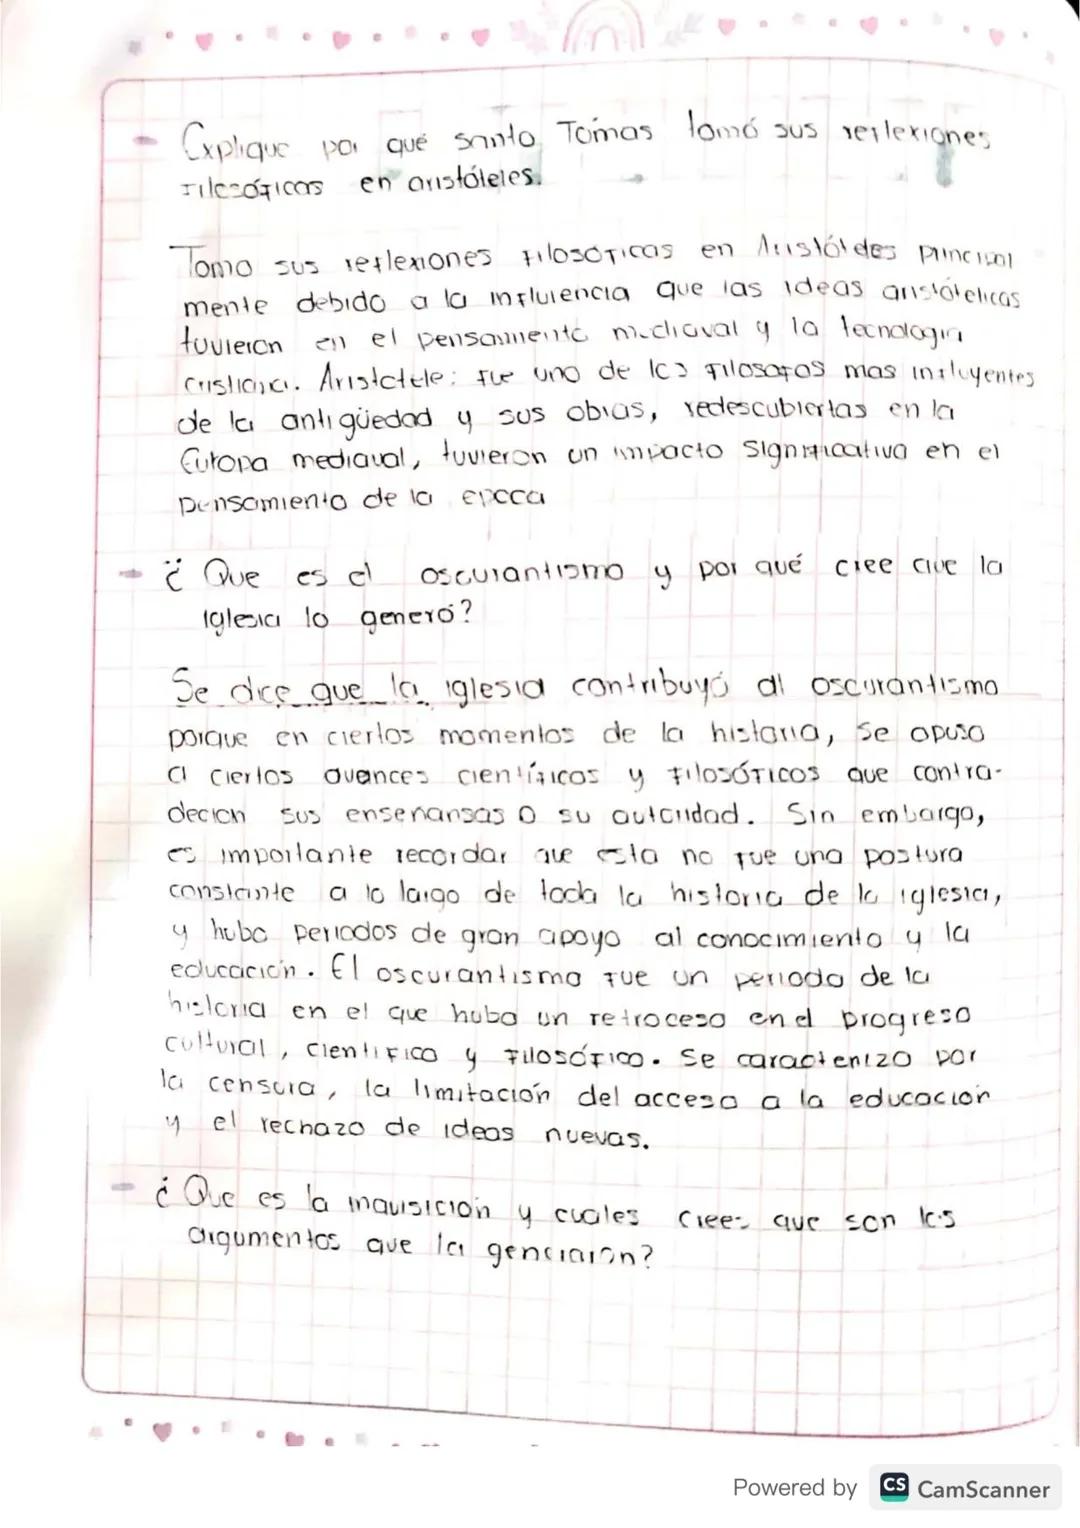 - Explique por qué santo Tomas tomó sus reflexiones
filosóficas en aristóteles.
Tomo sus reflexiones filosoficas en Aristóteles principal
mente debido a la influiencia que las ideas aristótelicas
tuvieron en el pensamiento mediaval y la tecnologia
cristiana. Aristotele: fue uno de los filosofos mas influyentes
de la antigüedad y sus obras, redescubiertas en la
Europa mediaval, tuvieron un impacto significativa en el
pensamiento de la epoca
- ¿ Que es el oscurantismo y por qué cree que la
Iglesia lo generó?
Se dice que la iglesia contribuyó al oscurantismo
porque en ciertos momentos de la historia, se opuso
a ciertos avances científicos y filosóficos que contra-
decion sus enseñansas o su autoridad. Sin embargo,
es importante recordar que esta no fue una postura
constante a lo largo de toda la historia de la iglesia,
y hubo periodos de gran apoyo al conocimiento y la
educación. El oscurantismo fue un periodo de la
historia en el que hubo un retroceso en el progreso
cultural, cientifico y filosófico. Se caracterizo por
la censura, la limitación del acceso a la educación
y el rechazo de ideas nuevas.
- ¿ Que es la inquisición y cuales crees que son los
argumentos que la generaron?
Powered by CS CamScanner